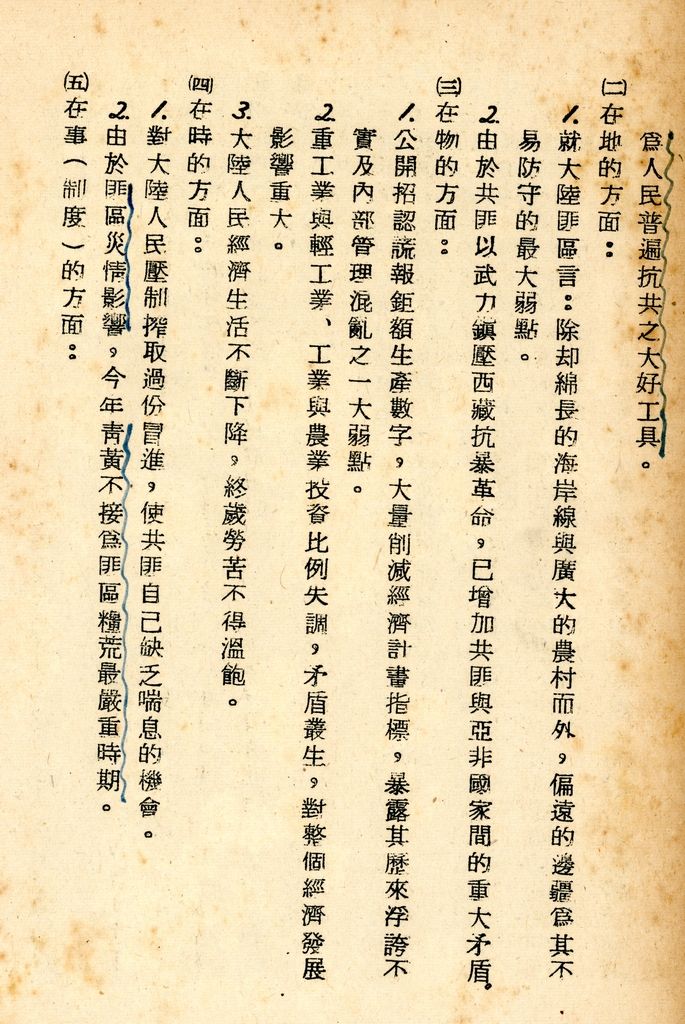 為人民普遍抗共之大好工具。
㈡在地的方面：
1.就大陸匪區言：除却綿長的海岸線與廣大的農村而外，偏遠的邊疆為其不
易防守的最大弱點。
2.由於共匪以武力鎮壓西藏抗暴革命，已增加共匪與亞非國家間的重大矛盾。
㈢在物的方面：
1.公開招認謊報鉅額生產數字，大量削減經濟計畫指標，暴露其歷來浮誇不
實及內部管理混亂之一大弱點。
2.重工業與輕工業、工業與農業投資比例失調，矛盾叢生，對整個經濟發展
影響重大。
3.大陸人民經濟生活不斷下降，終歲勞苦不得溫飽。
㈣在時的方面：
1.對大陸人民壓制搾取過份冒進，使共匪自己缺乏喘息的機會。
2.由於匪區災情影響，今年青黃不接為匪區糧荒最嚴重時期。
㈤在事（制度）的方面：